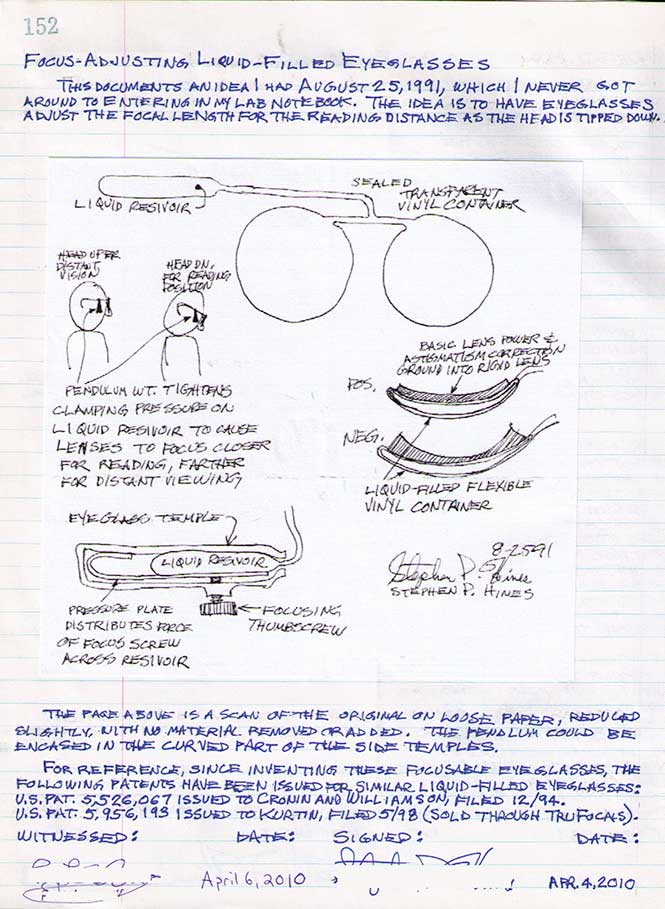 152
FOCUS-ADJUSTING LIQUID-FILLED EYEGLASSES
THIS DOCUMENTS AN IDEA I HAD AUGUST 25, 1991, WHICH I NEVER GOT
AROUND TO ENTERING IN MY LAB NOTEBOOK. THE IDEA IS TO HAVE EYEGLASSES
ADJUST THE FOCAL LENGTH FOR THE READING DISTANCE AS THE HEAD IS TIPPED DOWN.
LIQUID RESIVOIR
SEALED
TRANSPARENT
VINYL CONTAINER
HEAD UP FOR
DISTANT
VISION
HEAD DN.
FOR READING
POSITION
PENDULUM WT. TIGHTENS
CLAMPING PRESSURE ON
LIQUID RESIVOIR TO CAUSE
LENSES TO FOCUS CLOSER
FOR READING, FARTHER
FOR DISTANT VIEWING
BASIC LENS POWER &
ASTIGMATISM CORRECTION
GROUND INTO RIGID LENS
POS.
NEG.
LIQUID-FILLED FLEXIBLE
VINYL CONTAINER
EYEGLASS TEMPLE
LIQUID RESIVOIR
PRESSURE PLATE
DISTRIBUTES FORCE
OF FOCUS SCREW
ACROSS RESIVOIR
FOCUSING
THUMBSCREW
8-25-91
Stephen P. Hines
STEPHEN P. HINES
THE PAGE ABOVE IS A SCAN OF THE ORIGINAL ON LOOSE PAPER, REDUCED
SLIGHTLY, WITH NO MATERIAL REMOVED OR ADDED. THE PENDLUM COULD BE
ENCASED IN THE CURVED PART OF THE SIDE TEMPLES.
FOR REFERENCE, SINCE INVENTING THESE FOCUSABLE EYEGLASSES, THE
FOLLOWING PATENTS HAVE BEEN ISSUED FOR SIMILAR LIQUID-FILLED EYEGLASSES:
U.S. PAT. 5,526,067 ISSUED TO CRONIN AND WILLIAMSON, FILED 12/94.
U.S. PAT. 5,956,193 ISSUED TO KURTIN, FILED 5/98 (SOLD THROUGH TRUFOCALS).
WITNESSED: DATE: SIGNED: DATE:
April 6, 2010 APR. 4, 2010